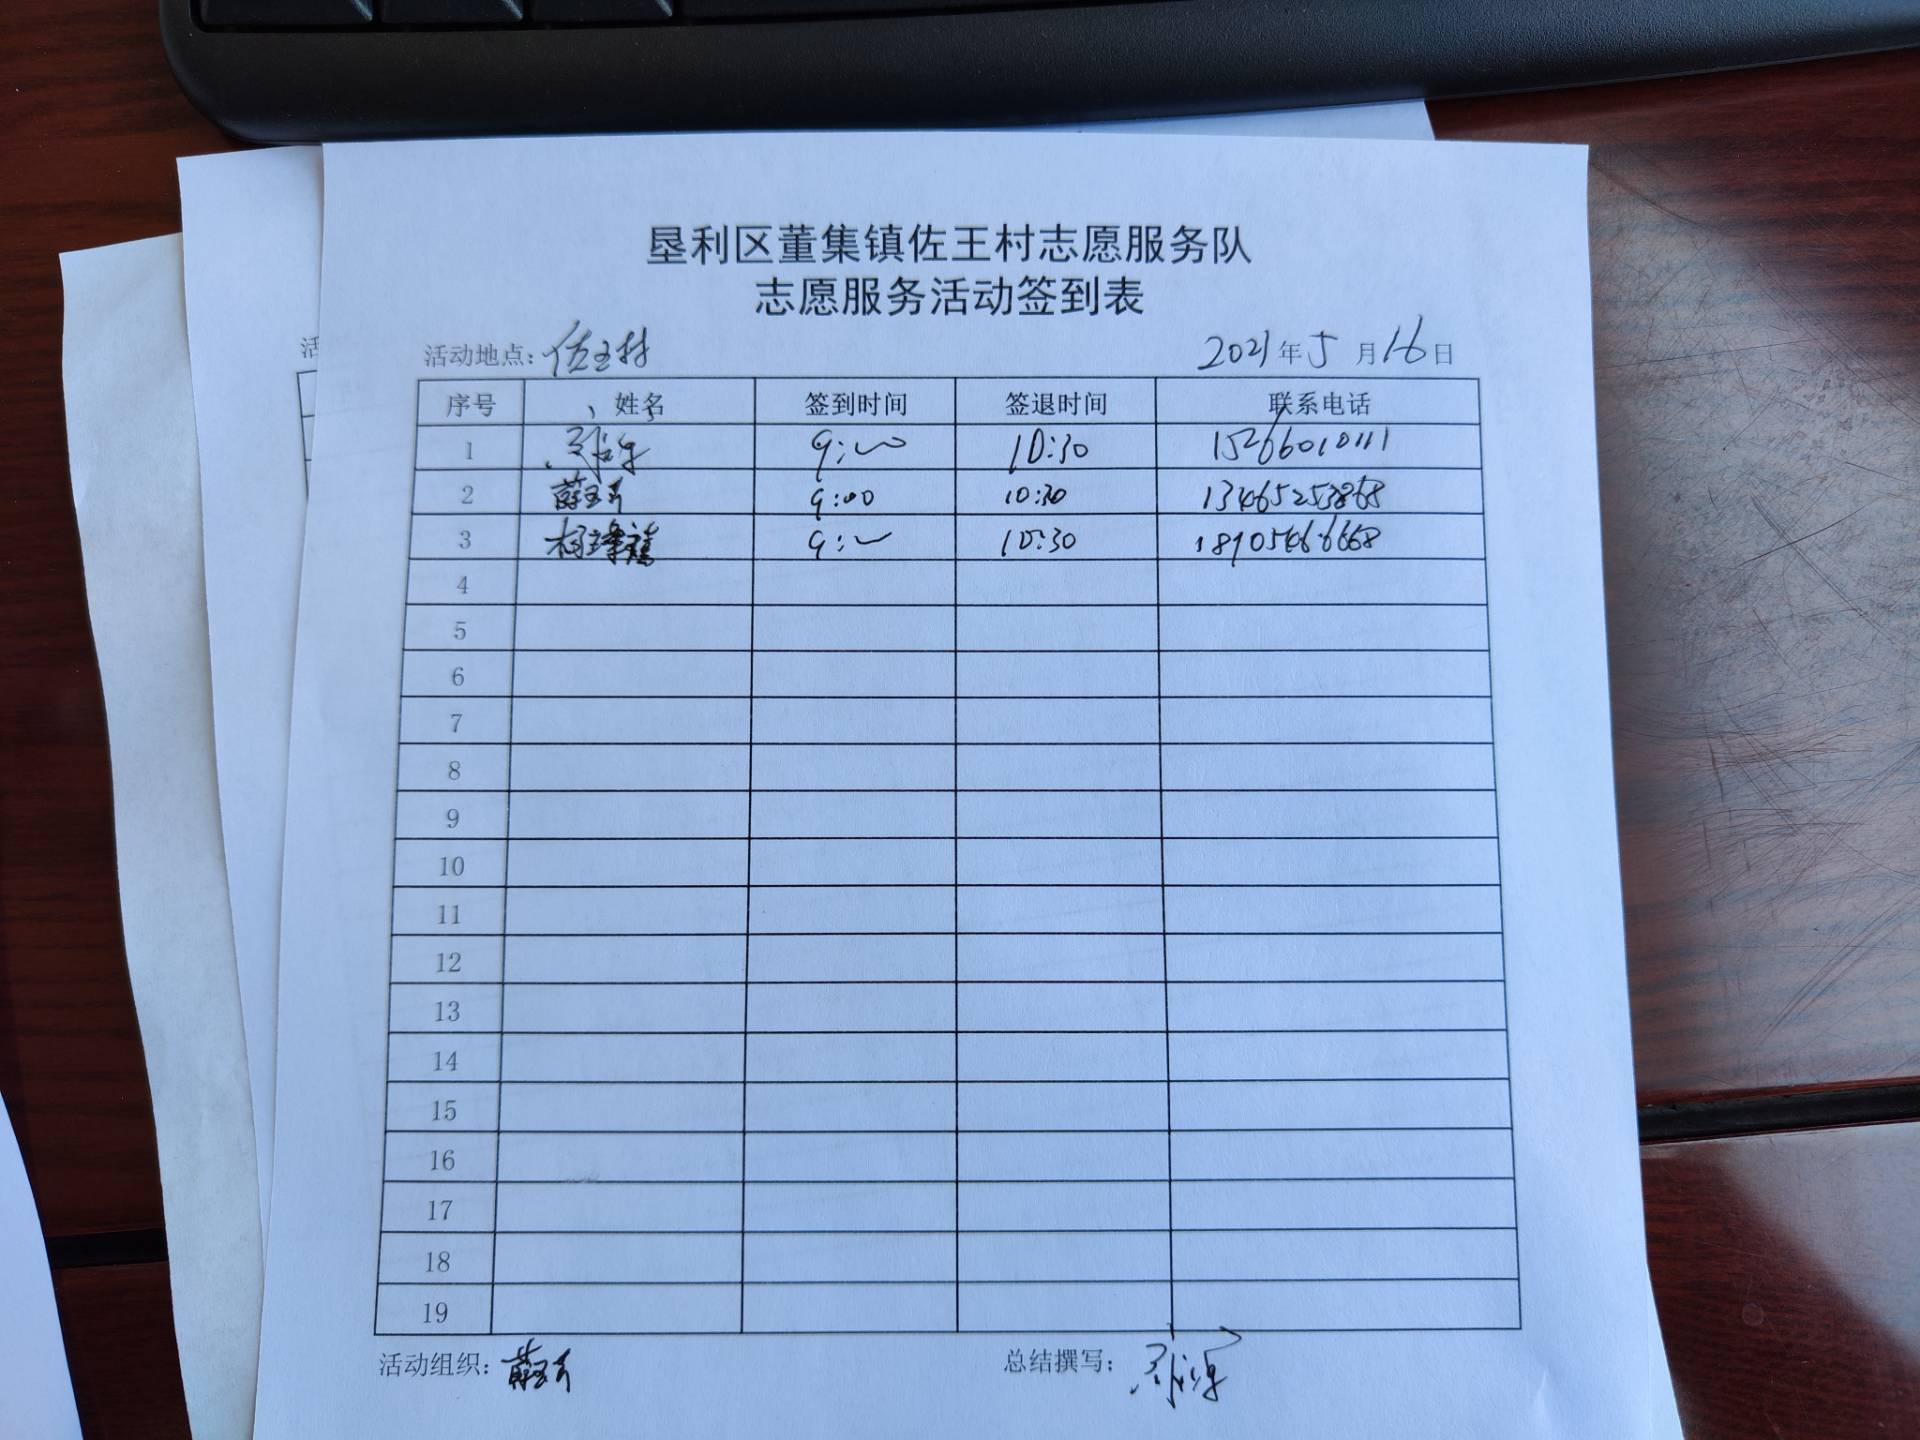 垦利区董集镇佐王村志愿服务队
志愿服务活动签到表
活
活动地点：佐王村 2021年5月16日
序号 姓名 签到时间 签退时间 联系电话
1 9:00 10:30 15266010111
2 9:00 10:30 13465253868
3 9:00 10:30 18905466668
4
5
6
7
8
9
10
11
12
13
14
15
16
17
18
19
活动组织： 总结撰写：